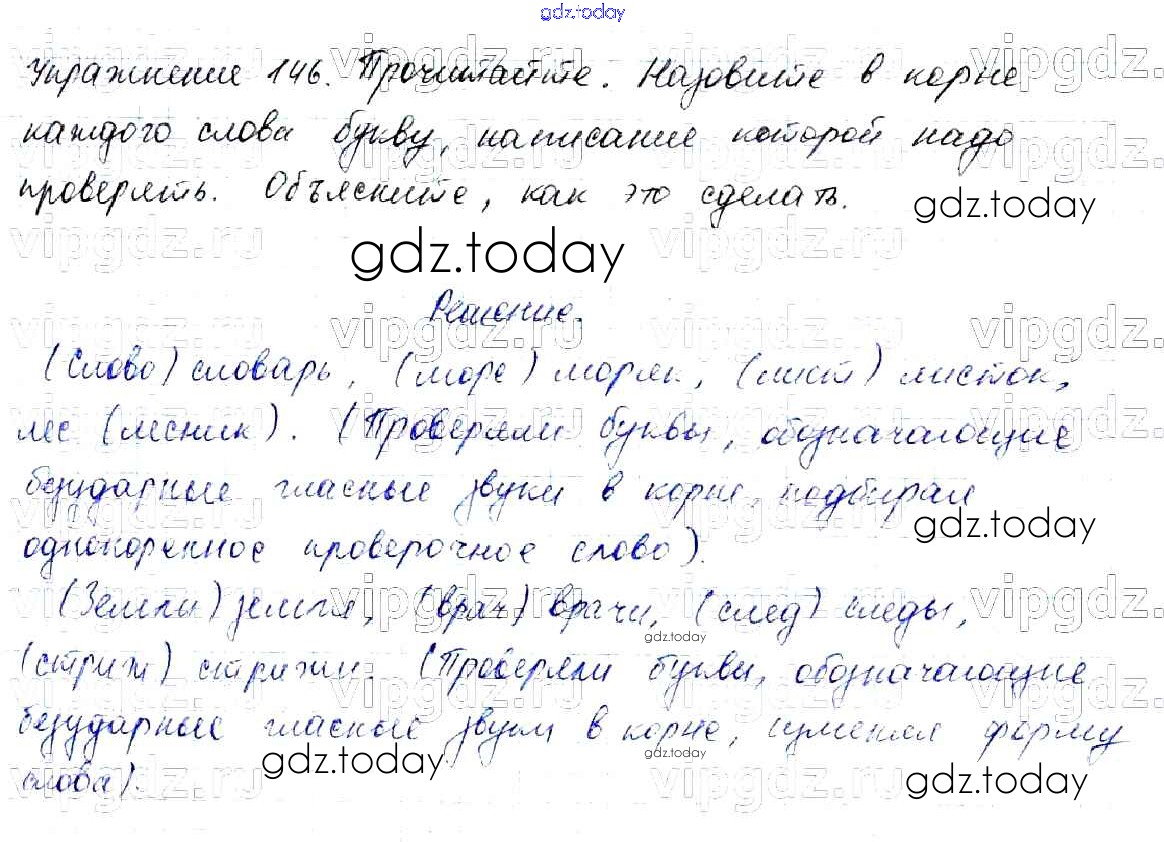 gdz.today
Упражнение 146. Прочитайте. Назовите в корне
каждого слова букву, написание которой надо
проверять. Объясните, как это сделать.
gdz.today
gdz.today
Решение.
(Слово) словарь, (море) моряк, (лист) листок,
лес (лесник). (Проверяли буквы, обозначающие
безударные гласные звуки в корне, подбирая
gdz.today
однокоренное проверочное слово).
(Земли) земля, (врач) врачи, (след) следы,
gdz.today
(стриж) стрижи. (Проверяли буквы, обозначающие
безударные гласные звуки в корне, изменяя форму
слова).
gdz.today
gdz.today
vipgdz.ru